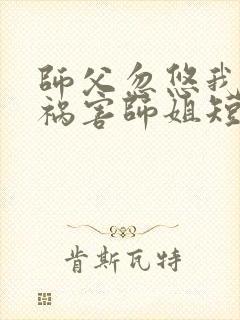 師父忽悠我
祸害師姐短
肯斯瓦特